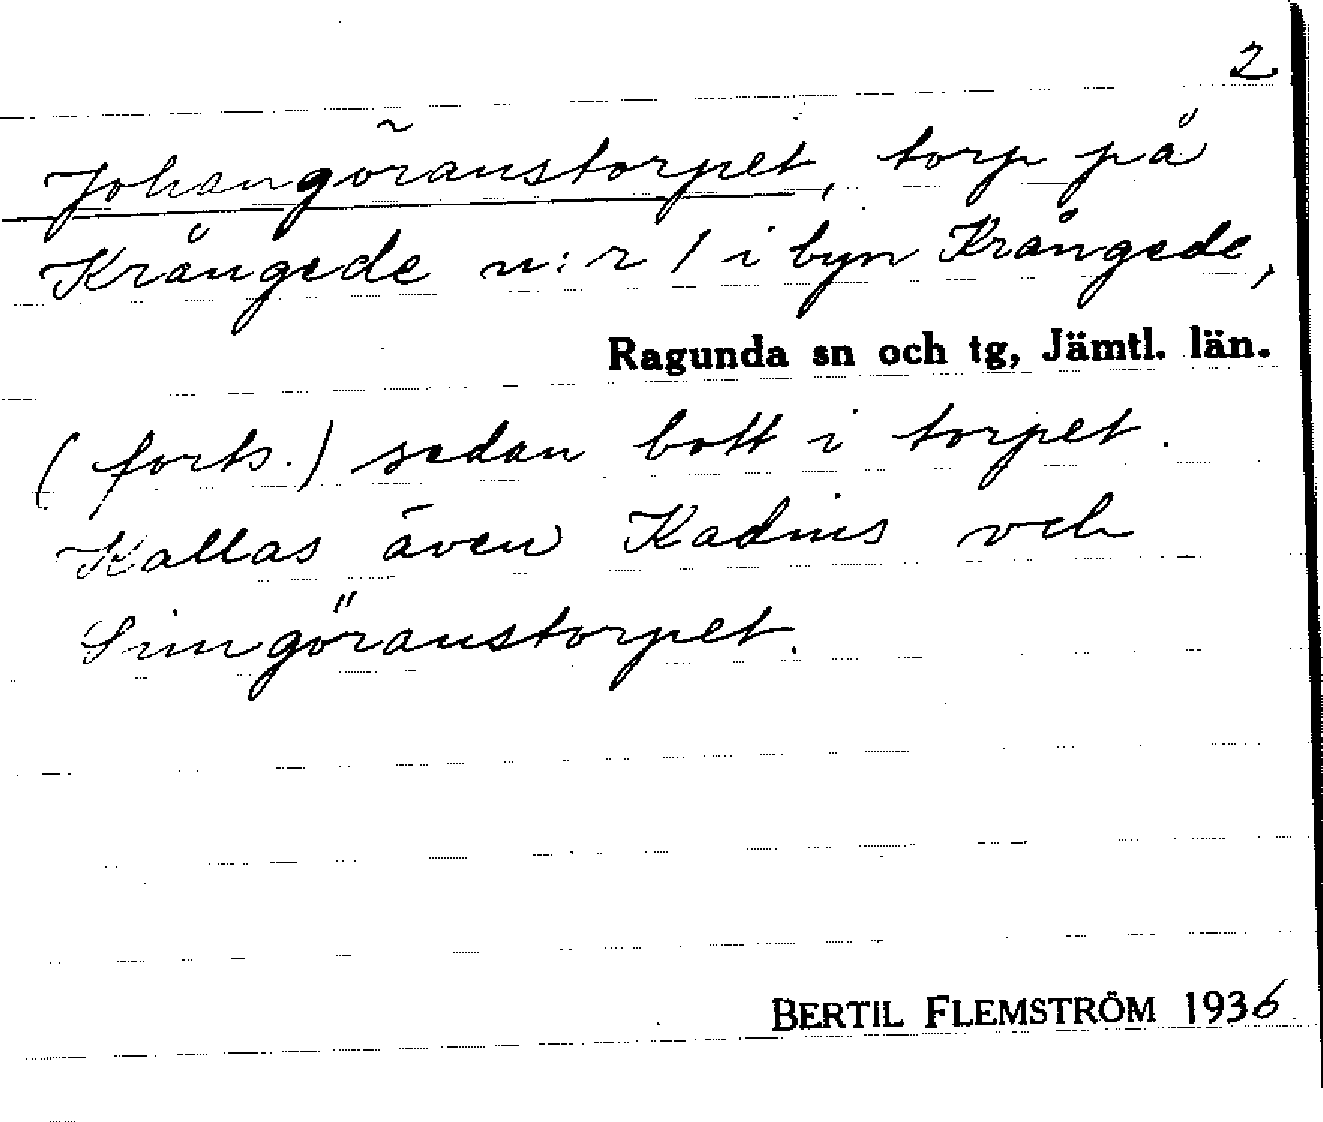 2
Johangöranstorpet, torp på
Krångede n:r 1 i byn Krångede,
Ragunda sn och tg, Jämtl. län.
(forts.) sedan bott i torpet.
Kallas även Kadnis och
Simgöranstorpet.
BERTIL FLEMSTRÖM 1936